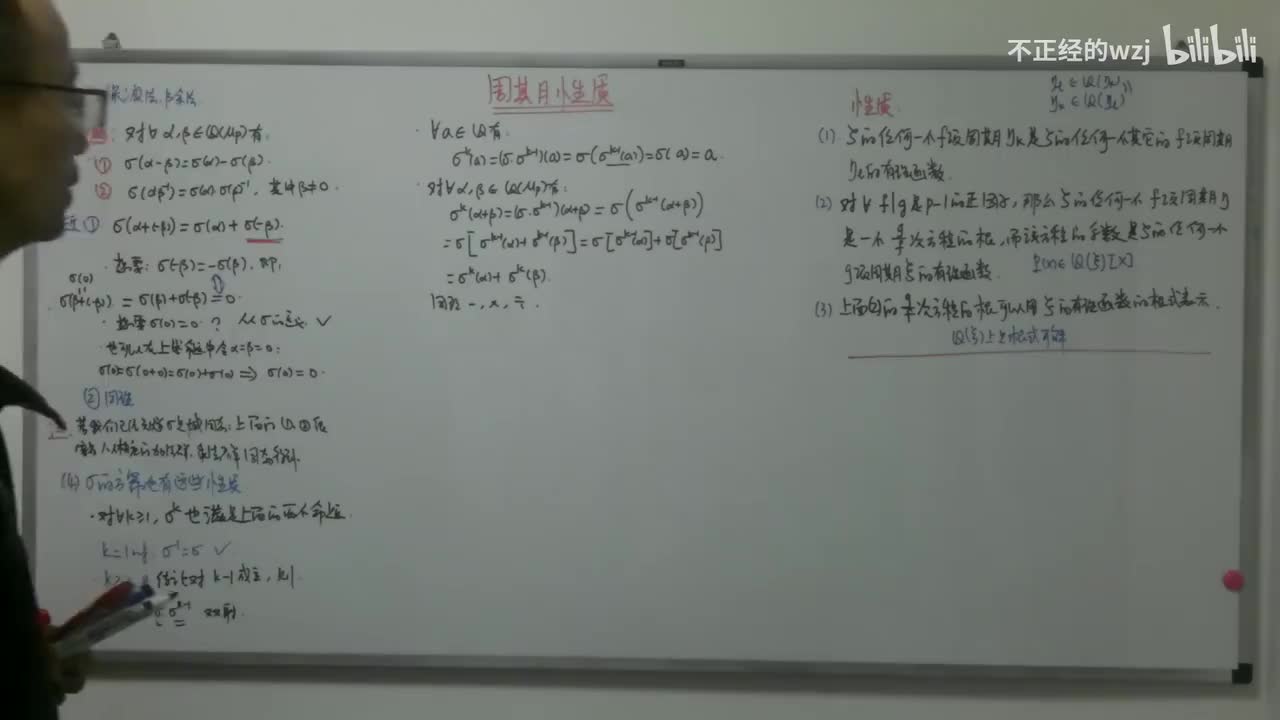 不正经的wzj bilibili
周期性质
对∀ α,β∈Q(μp)有:
① σ(α-β)=σ(α)-σ(β).
② σ(αβ⁻¹)=σ(α)σ(β)⁻¹, 其中β≠0.
① σ(α+(-β))=σ(α)+σ(-β).
需要: σ(-β)=-σ(β). 即:
σ(0)
σ(β+(-β))=σ(β)+σ(-β)=0.
需要σ(0)=0 ? 从σ的定义 ✓
也可以在上述命题中令α=β=0:
σ(0)=σ(0+0)=σ(0)+σ(0) ⟹ σ(0)=0.
② 同理
(4) σ的方幂也有这些性质
·对∀k≥1, σᵏ也满足上面的两个命题.
k=1时. σ¹=σ ✓
假设对 k-1 成立, 则
σᵏ⁻¹ 双射.
· ∀a∈Q有:
σᵏ(a)=(σ·σᵏ⁻¹)(a)=σ(σᵏ⁻¹(a))=σ(a)=a.
·对∀α,β∈Q(μp)有:
σᵏ(α+β)=(σ·σᵏ⁻¹)(α+β)=σ(σᵏ⁻¹(α+β))
=σ[σᵏ⁻¹(α)+σᵏ⁻¹(β)]=σ[σᵏ⁻¹(α)]+σ[σᵏ⁻¹(β)]
=σᵏ(α)+σᵏ(β).
同理 -, ×, ÷.
性质.
(1) ξ的任何一个f项周期ηk是ξ的任何一个其它的f项周期
ηl的有理函数.
(2) 对∀ f|g是p-1的正因子, 那么ξ的任何一个f项周期η
是一个g/f次方程的根, 而该方程的系数是ξ的任何一个
g项周期ξ的有理函数. ∈Q(ξ)[X]
(3) 上面的g/f次方程的根可以用ξ的有理函数的根式表示.
Q(ξ)上是根式可解